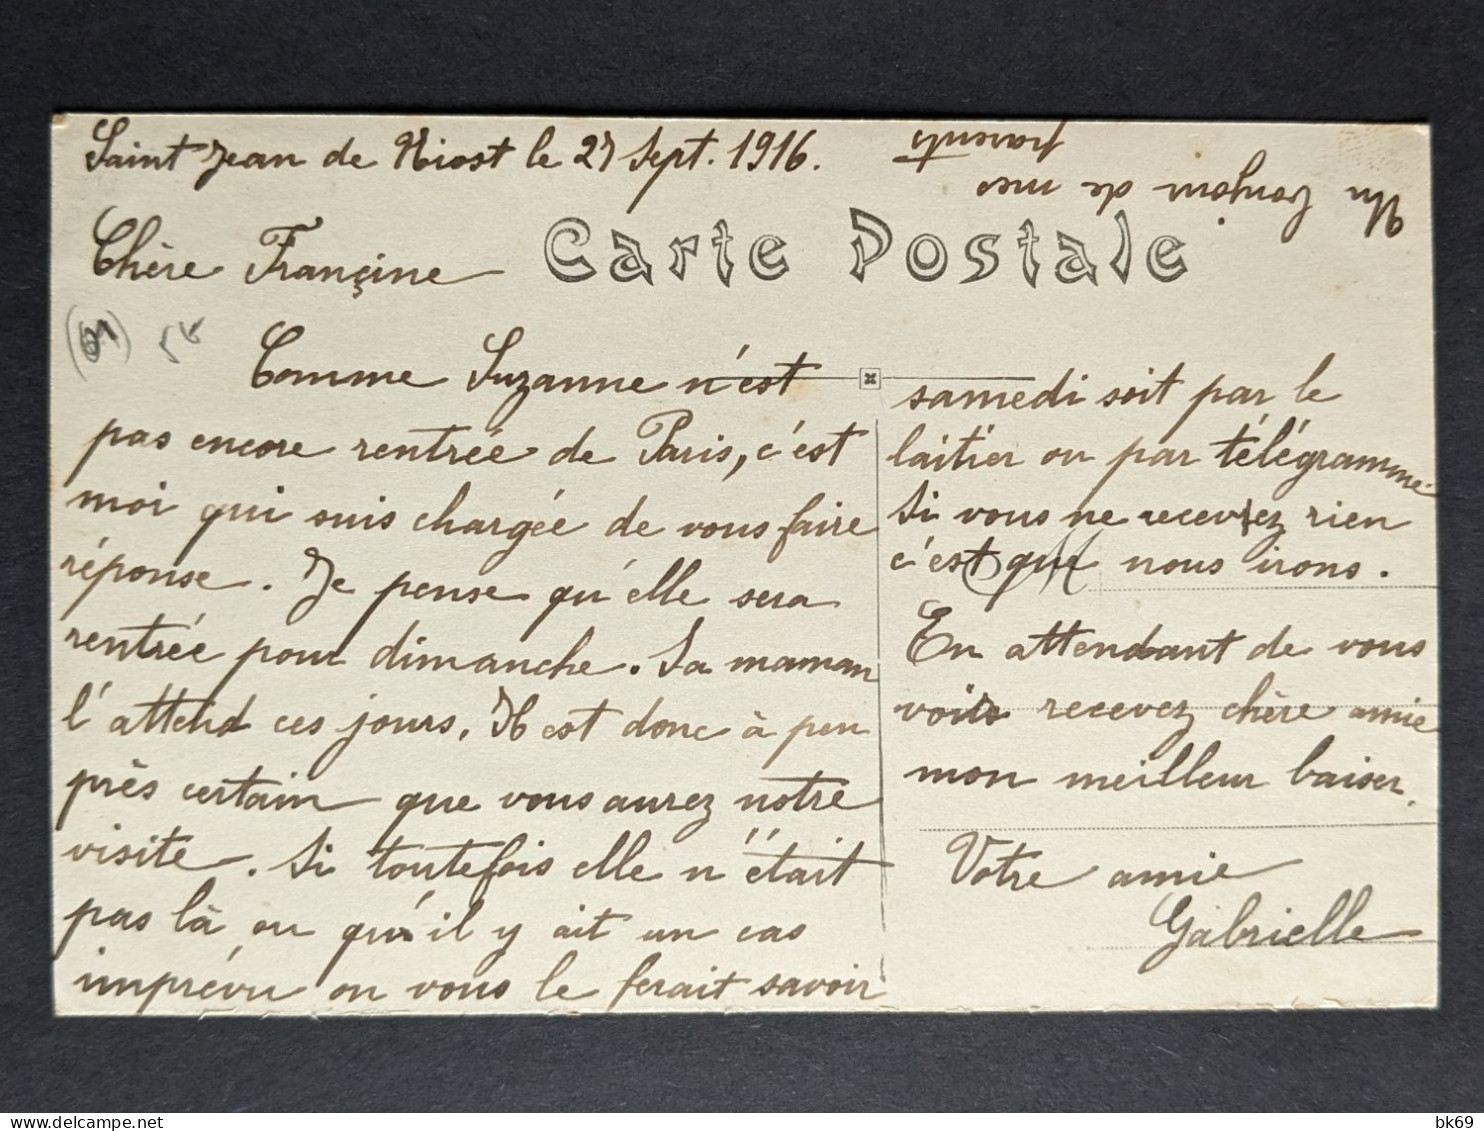 Saint Jean de Niost le 27 Sept. 1916.
Un bonjour de mes
parents
Chère Françine
Carte Postale
(01)
Comme Suzanne n'est
pas encore rentrée de Paris, c'est
moi qui suis chargée de vous faire
réponse. Je pense qu'elle sera
rentrée pour dimanche. Sa maman
l'attend ces jours. Il est donc à peu
près certain que vous aurez notre
visite. Si toutefois elle n'était
pas là ou qu'il y ait un cas
imprévu on vous le ferait savoir
samedi soit par le
laitier ou par télégramme
Si vous ne recevrez rien
c'est que nous irons.
En attendant de vous
voir recevez chère amie
mon meilleur baiser.
Votre amie
Gabrielle
www.delcampe.net
bk69